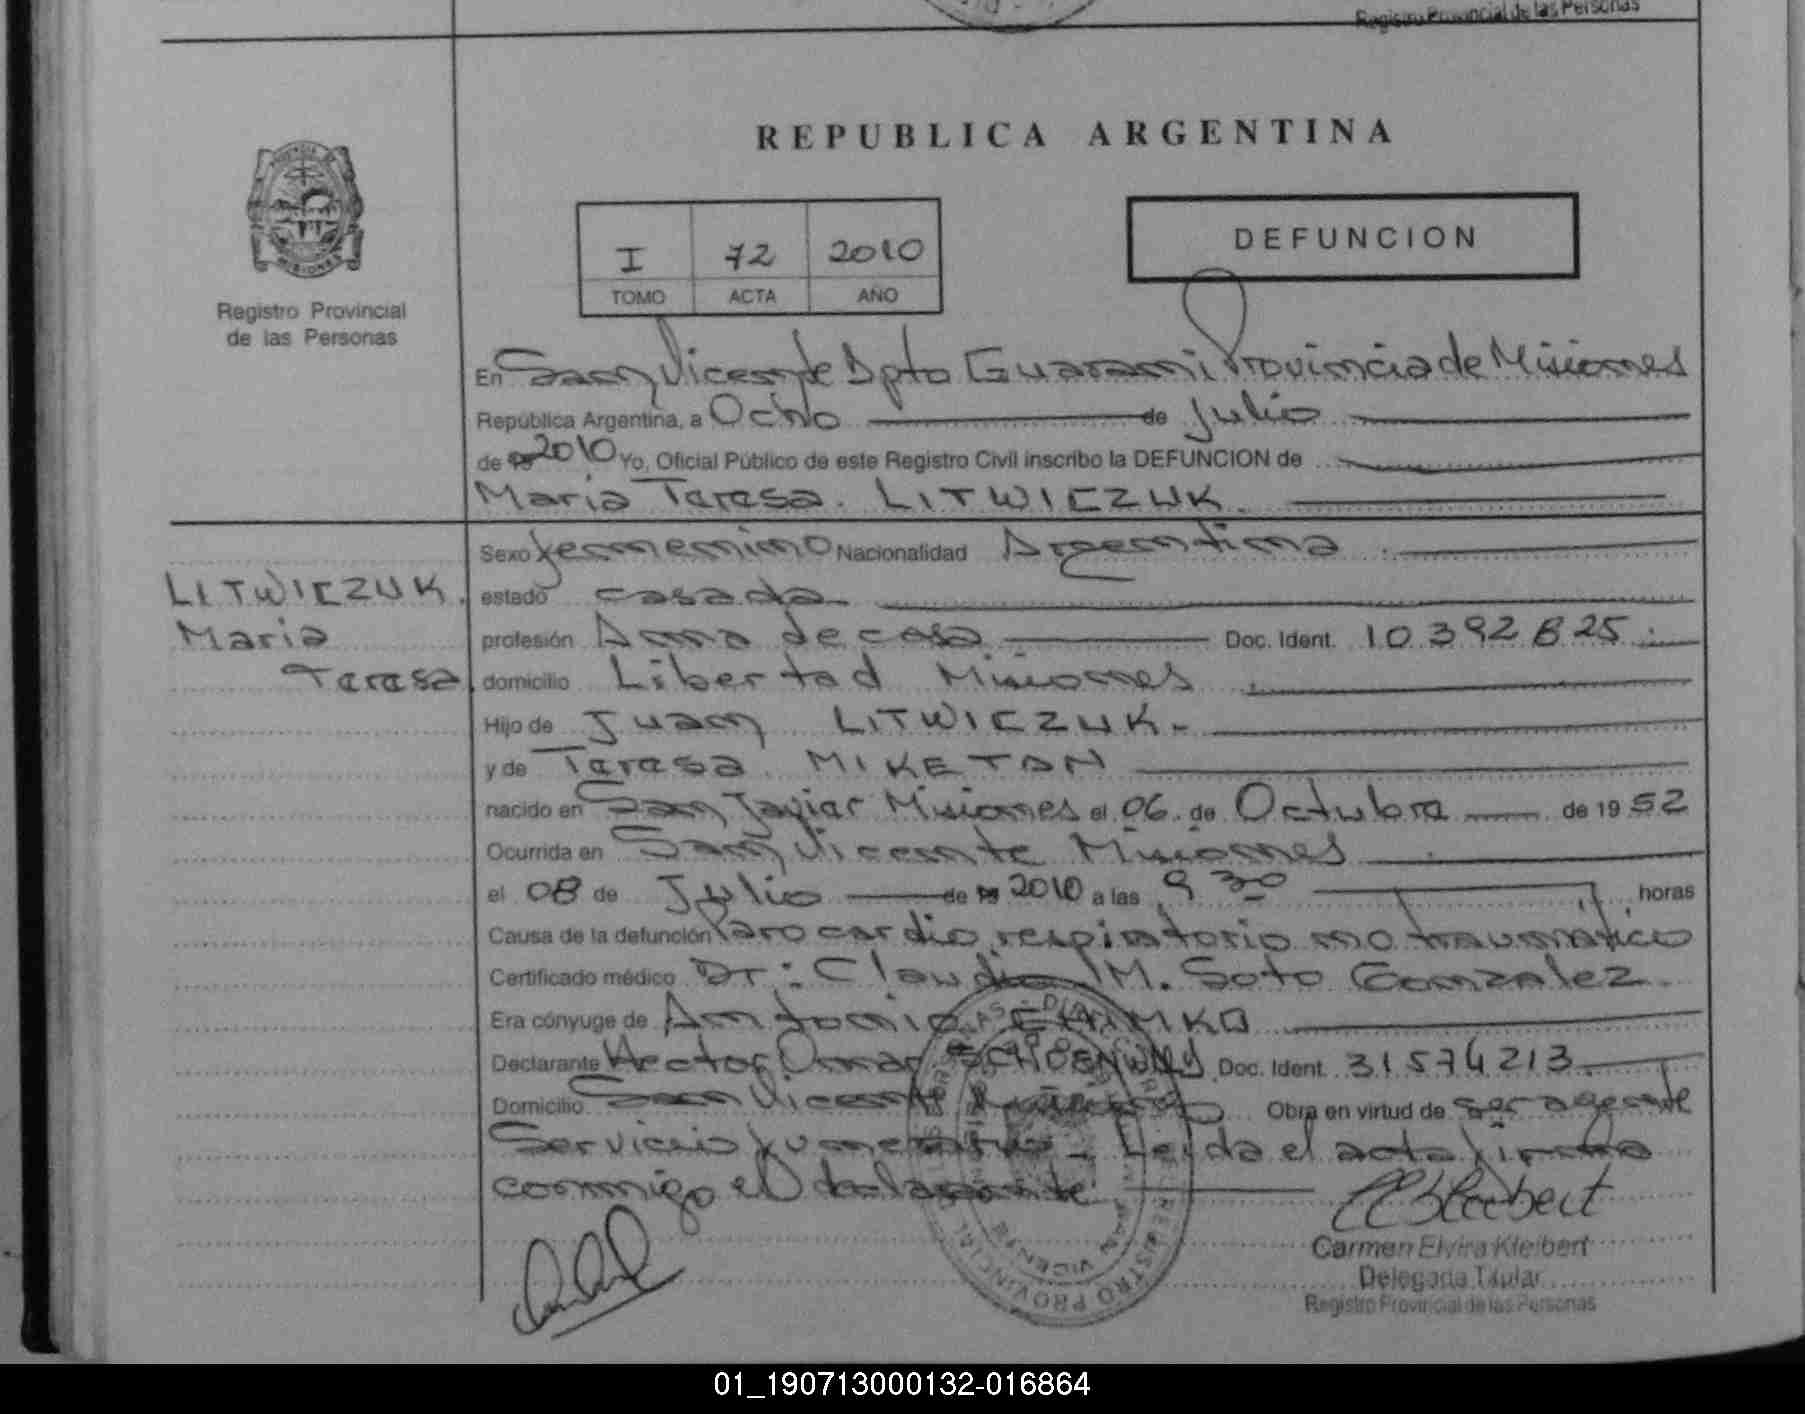 Registro Provincial de las Personas
REPUBLICA ARGENTINA
MISIONES
Registro Provincial
de las Personas
I 72 2010
TOMO ACTA AÑO
DEFUNCION
En San Vicente Dpto Guarani Provincia de Misiones
República Argentina, a Ocho de Julio
de 2010 Yo, Oficial Público de este Registro Civil inscribo la DEFUNCION de
Maria Teresa. LITWICZUK.
LITWICZUK.
Maria
Teresa
Sexo femenino Nacionalidad Argentina
estado casada
profesión Ama de casa Doc. Ident. 10.392.825
domicilio Libertad Misiones
Hijo de Juan LITWICZUK.-
y de Teresa MIKETAN
nacido en San Javier Misiones el 06 de Octubre de 1952
Ocurrida en San Vicente Misiones
el 08 de Julio de 2010 a las 9 30 horas
Causa de la defunción Paro cardio respiratorio no traumatico
Certificado médico Dr: Claudio M. Soto Gonzalez
Era cónyuge de Antonio
Declarante Hector Omar Doc. Ident. 31.574.213
Domicilio San Vicente Obra en virtud de ser agente
Servicio - Leida el acta firma
conmigo el
Carmen Elvira Kleibert
Delegada Titular
Registro Provincial de las Personas
01_190713000132-016864